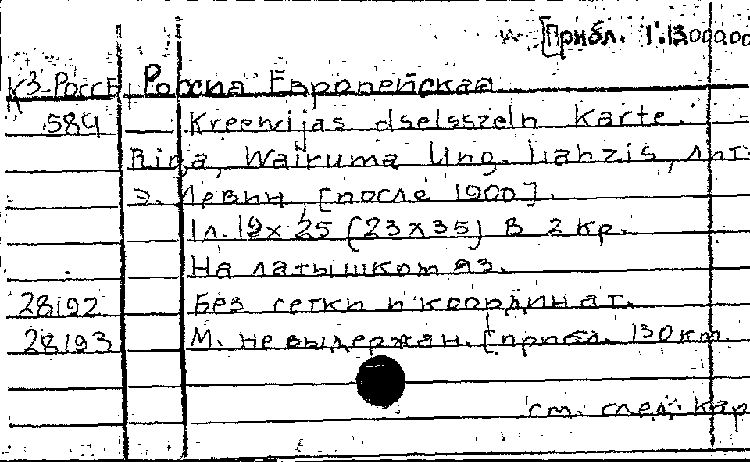 [Прибл. 1:13000000
К3-РоссЕ Россиа Европейская
584 Kreewijas dselsszeln Karte.
Riga, Waikuma Ung. Liahzis, лит.
Э. Левин, [после 1900].
1л. 19х25 (23х35) в 2 кр.
На латышком яз.
28192 Без сетки и координат.
28193 М. не выдержан. [прибл. 130 км
см. след. кар